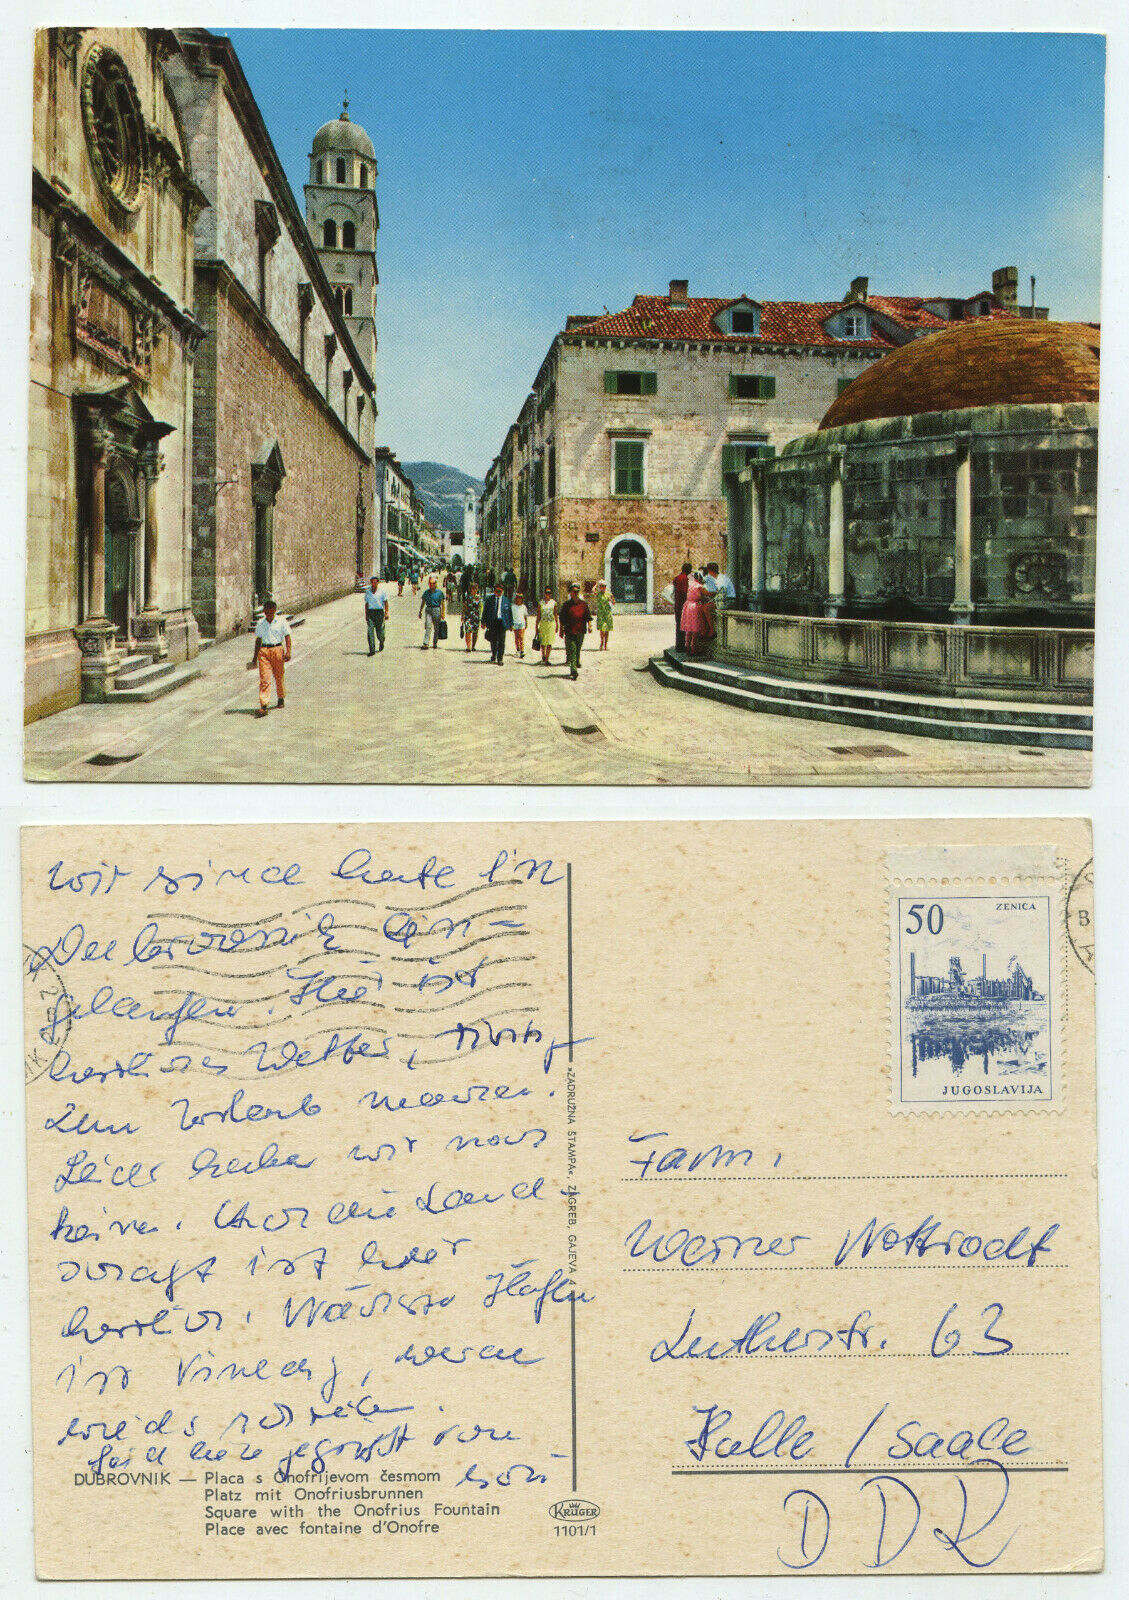 wir sind heute in
Dubrovnik ein-
gelangen. Hier ist
herrliches Wetter, richtig
zum Urlaub machen.
Leider haben wir noch
keinen. die Land
ist hier
herrlich. Nächster Hafen
ist Venedig, wenn
wird
Seid gegrüßt von
DUBROVNIK — Placa s Onofrijevom česmom
Platz mit Onofriusbrunnen
Square with the Onofrius Fountain
Place avec fontaine d'Onofre
»ZADRUŽNA ŠTAMPA«, ZAGREB, GAJEVA 4
KRÜGER
1101/1
50 ZENICA
JUGOSLAVIJA
Fam.
Werner Nottrodt
Lutherstr. 63
Halle / Saale
DDR